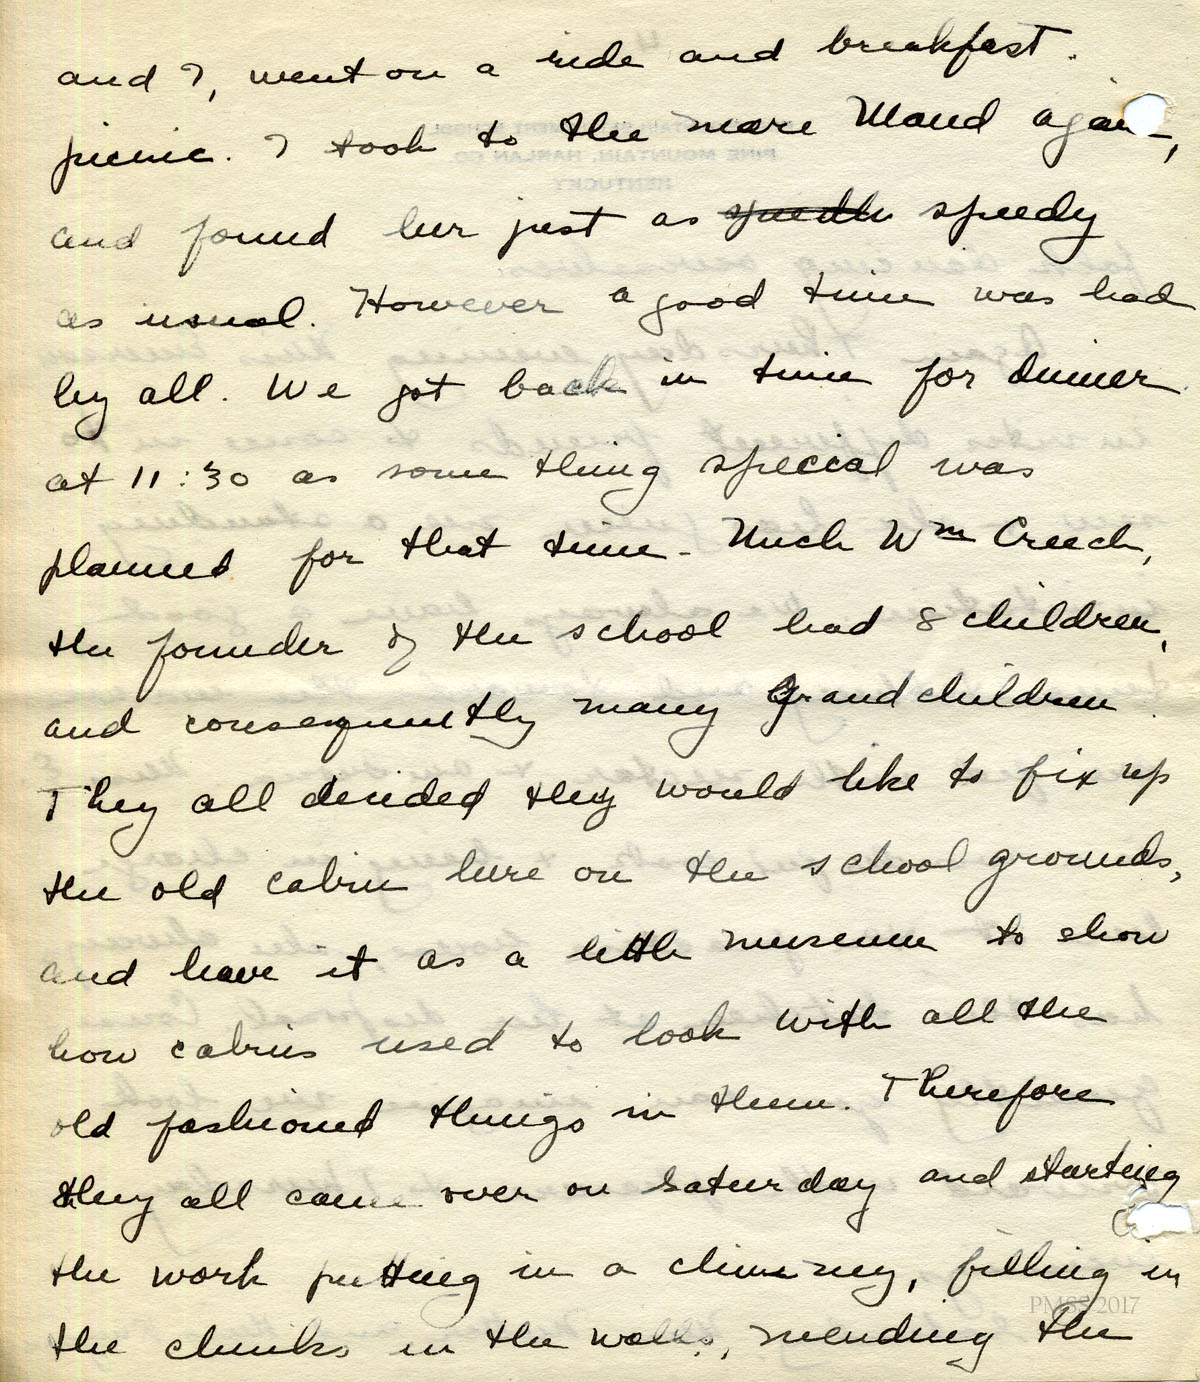 and I, went on a ride and breakfast.
picnic. I took to the mare Maud again,
and found her just as speedy
as usual. However a good time was had
by all. We got back in time for dinner
at 11:30 as some thing special was
planned for that time. Unck Wm Creech,
the founder of the school had 8 children,
and consequently many Grandchildren.
They all decided they would like to fix up
the old cabin here on the school grounds,
and have it as a little museum to show
how cabins used to look with all the
old fashioned things in them. Therefore
they all came over on Saturday and starting
the work putting in a chimney, filling in
the chinks in the walls, mending the
PMSS 2017